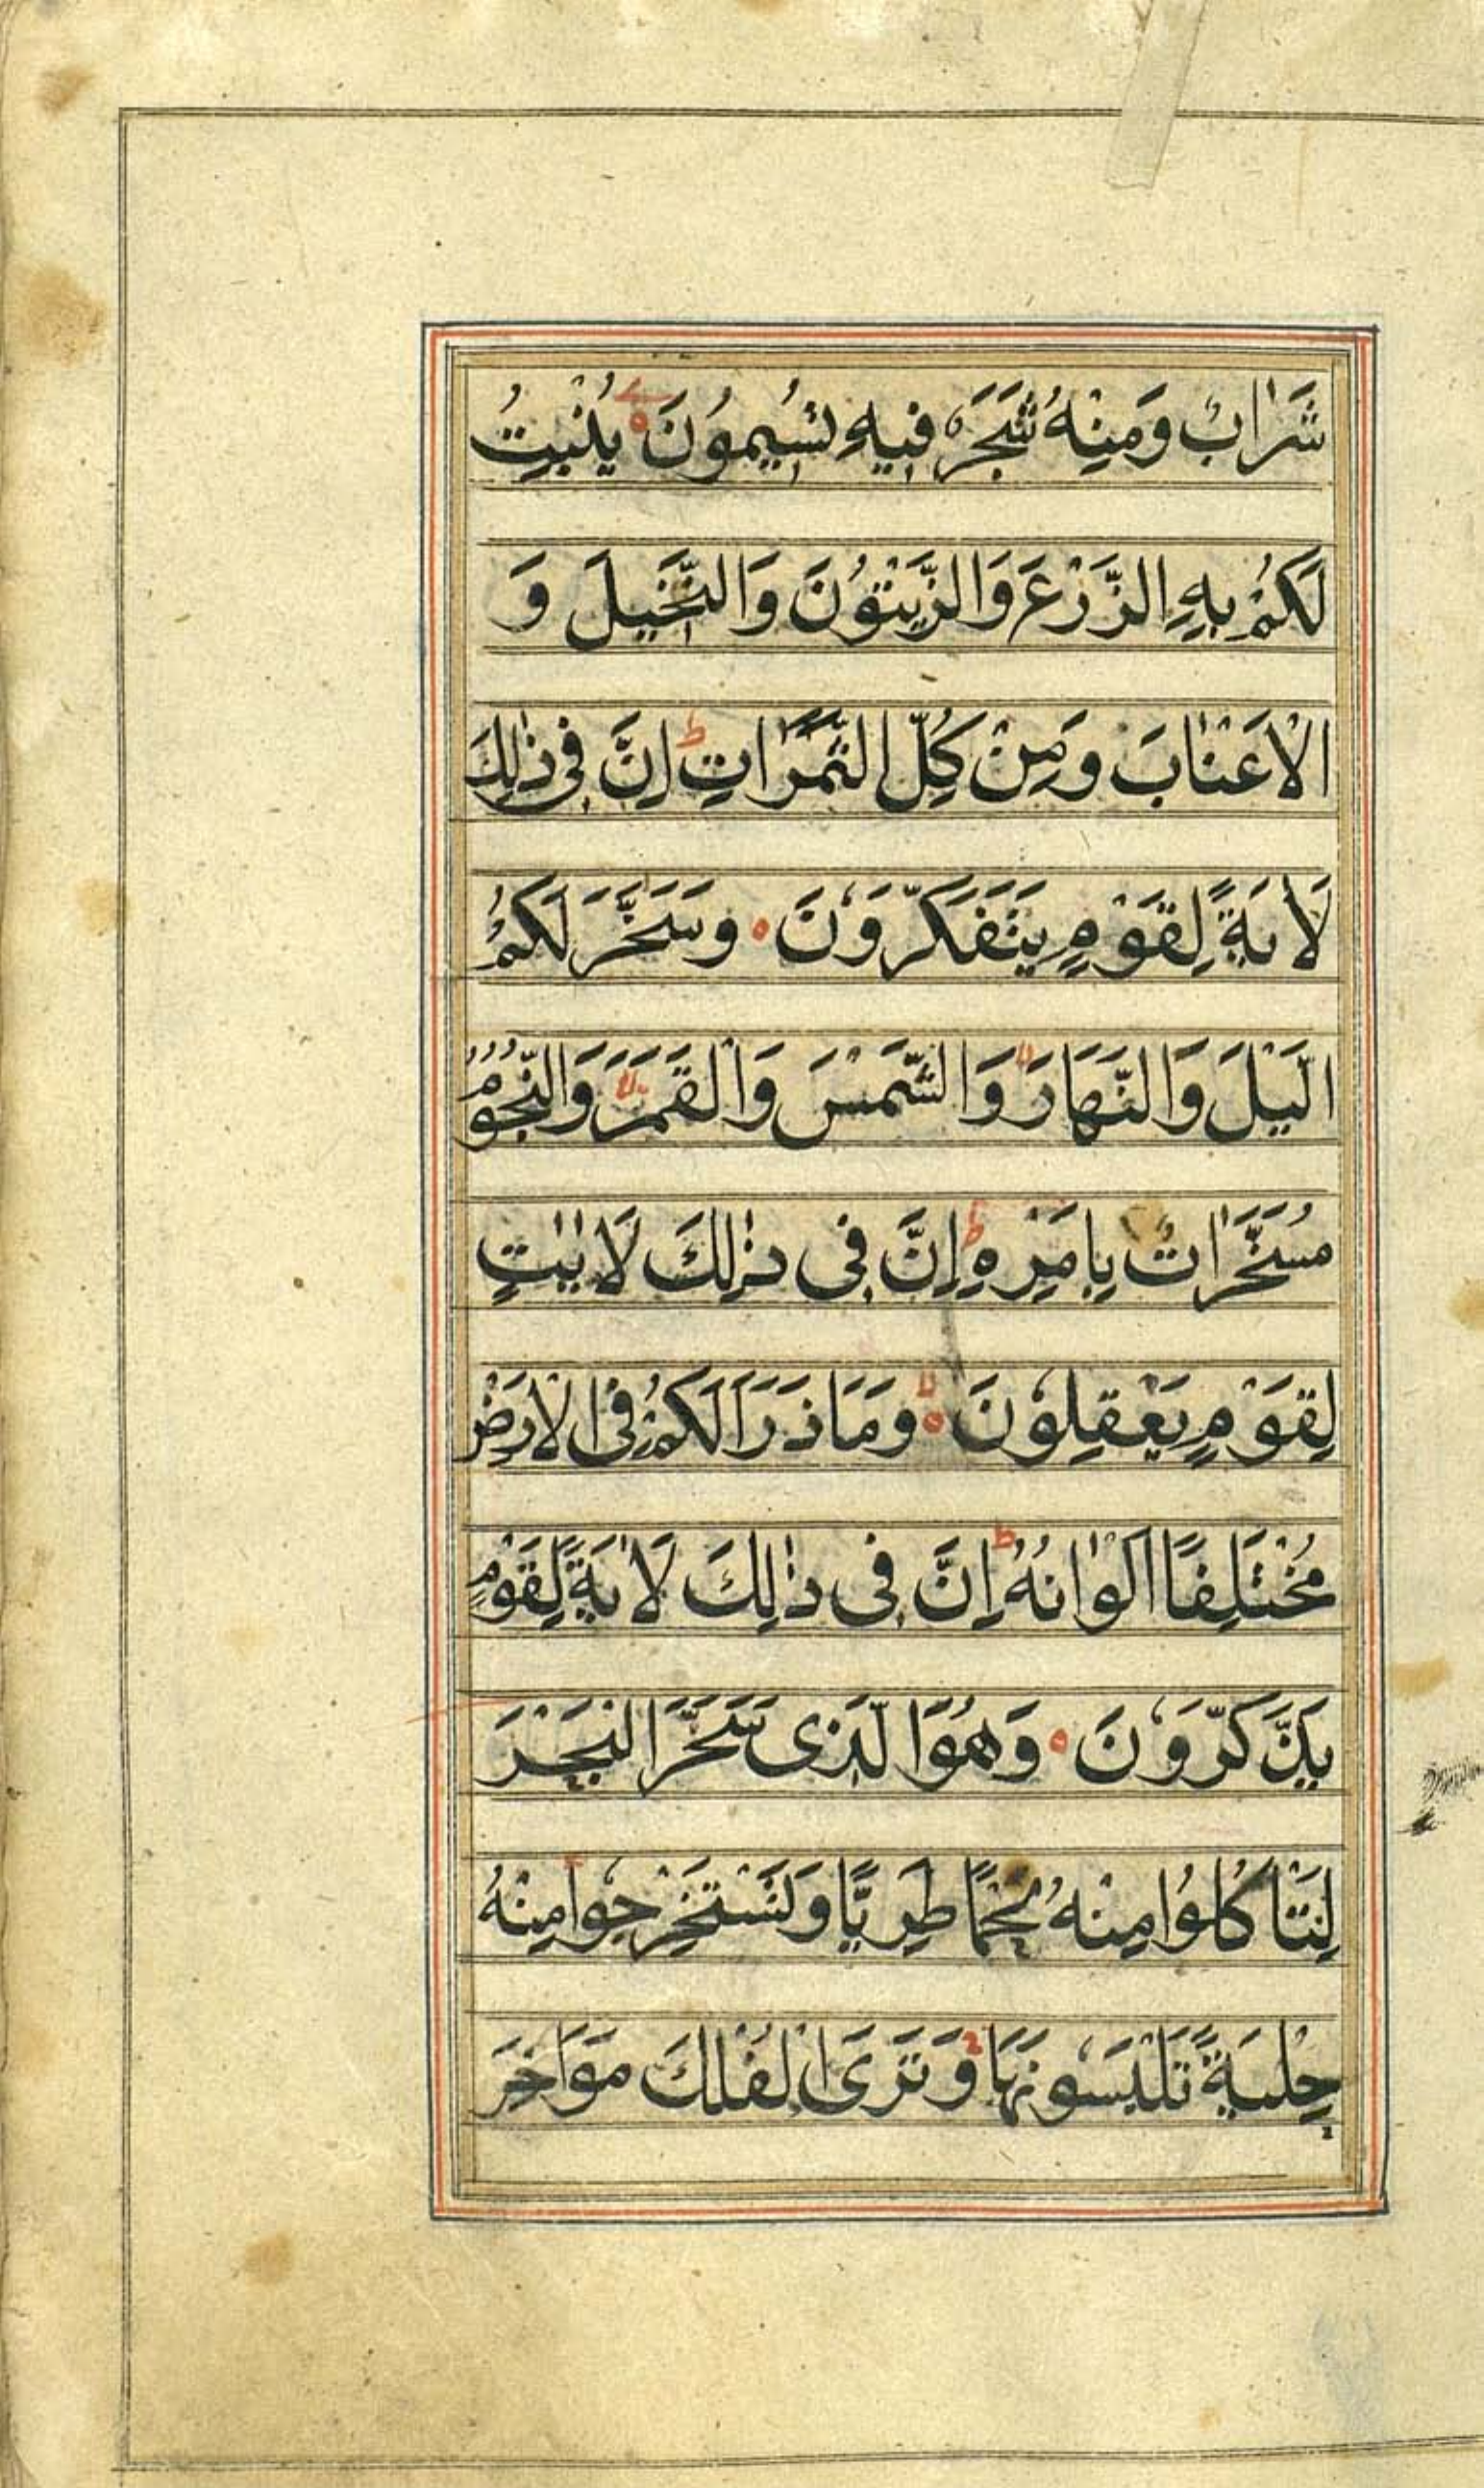 شَرَابٌ وَمِنْهُ شَجَرٌ فِيهِ تُسِيمُونَ يُنْبِتُ
لَكُمْ بِهِ الزَّرْعَ وَالزَّيْتُونَ وَالنَّخِيلَ وَ
الْاَعْنَابَ وَمِنْ كُلِّ الثَّمَرَاتِ ط اِنَّ فِى ذٰلِكَ
لَاٰيَةً لِقَوْمٍ يَتَفَكَّرُونَ وَسَخَّرَ لَكُمُ
الَّيْلَ وَالنَّهَارَ لا وَالشَّمْسَ وَالْقَمَرَ لا وَالنُّجُومُ
مُسَخَّرَاتٌ بِاَمْرِهِ ط اِنَّ فِى ذٰلِكَ لَاٰيٰتٍ
لِقَوْمٍ يَعْقِلُونَ لا وَمَا ذَرَاَ لَكُمْ فِى الْاَرْضِ
مُخْتَلِفًا اَلْوَانُهُ ط اِنَّ فِى ذٰلِكَ لَاٰيَةً لِقَوْمٍ
يَذَّكَّرُونَ وَهُوَ الَّذِى سَخَّرَ الْبَحْرَ
لِتَاْكُلُوا مِنْهُ لَحْمًا طَرِيًّا وَتَسْتَخْرِجُوا مِنْهُ
حِلْيَةً تَلْبَسُونَهَا وَتَرَى الْفُلْكَ مَوَاخِرَ